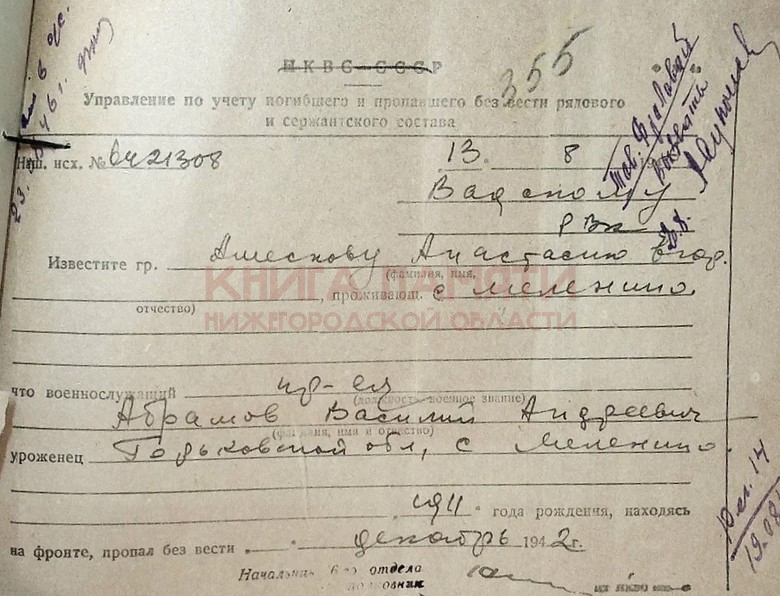 НКВС СССР
355
Управление по учету погибшего и пропавшего без вести рядового
и сержантского состава
Наш. исх. № 6421308
13. 8
Вадскому
РВк
Известите гр. Анастасию Егор.
(фамилия, имя,
, проживающ. с Меленино
отчество)
КНИГА ПАМЯТИ
НИЖЕГОРОДСКОЙ ОБЛАСТИ
что военнослужащий кр-ец
(должность, военное звание)
Абрамов Василий Андреевич
(фамилия, имя и отчество)
уроженец Горьковской обл, с Меленино
1911 года рождения, находясь
на фронте, пропал без вести декабрь 1942 г.
Начальник 6-го отдела
полковник
тов.
19.08